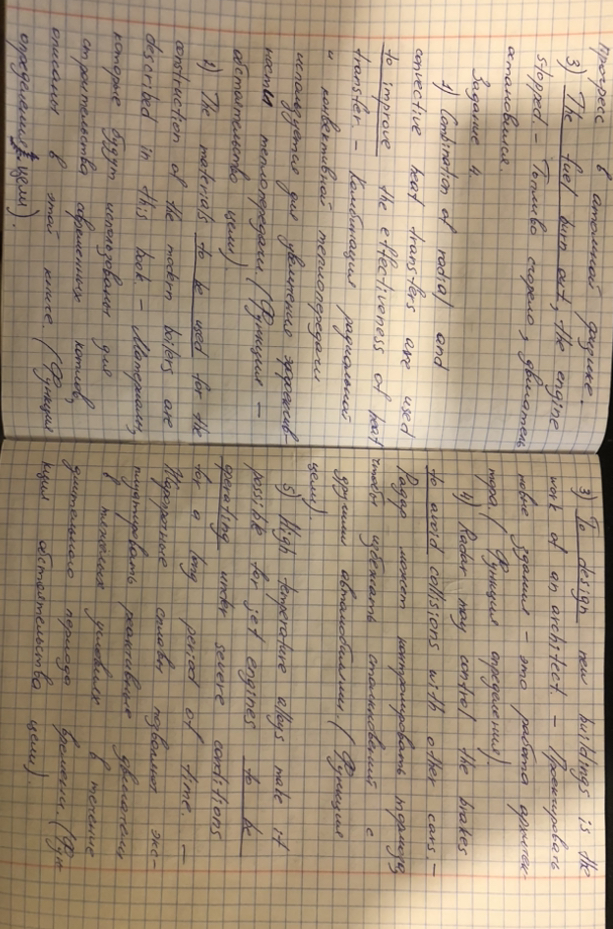 прогресс в атомной физике.
3) The fuel burn out, the engine
stopped - Топливо сгорело, двигатель
остановился.
Задание 4.
1) Combination of radial and
convective heat transfers are used
to improve the effectiveness of heat
transfer - Комбинация радиальной
и конвективной теплопередачи
используется для увеличения эффектив-
ности теплопередачи (Функция -
обстоятельство цели).
2) The materials to be used for the
construction of the modern boilers are
described in this book. Материалы,
которые будут использованы для
строительства современных котлов,
описаны в этой книге. (Функция
определения цели).
3) To design new buildings is the
work of an architect. - Проектировать
новые здания - это работа архитек-
тора. (Функция определения).
4) Radar may control the brakes
to avoid collisions with other cars. -
Радар может контролировать тормоза
чтобы избежать столкновений с
другими автомобилями. (Функция
цели).
5) High temperature alloys make it
possible for jet engines to be
operating under severe conditions
for a long period of time. -
сплавы позволяют экс-
плуатировать реактивные двигатели
в тяжелых условиях в течение
длительного периода времени. (Фун-
кция обстоятельства цели).